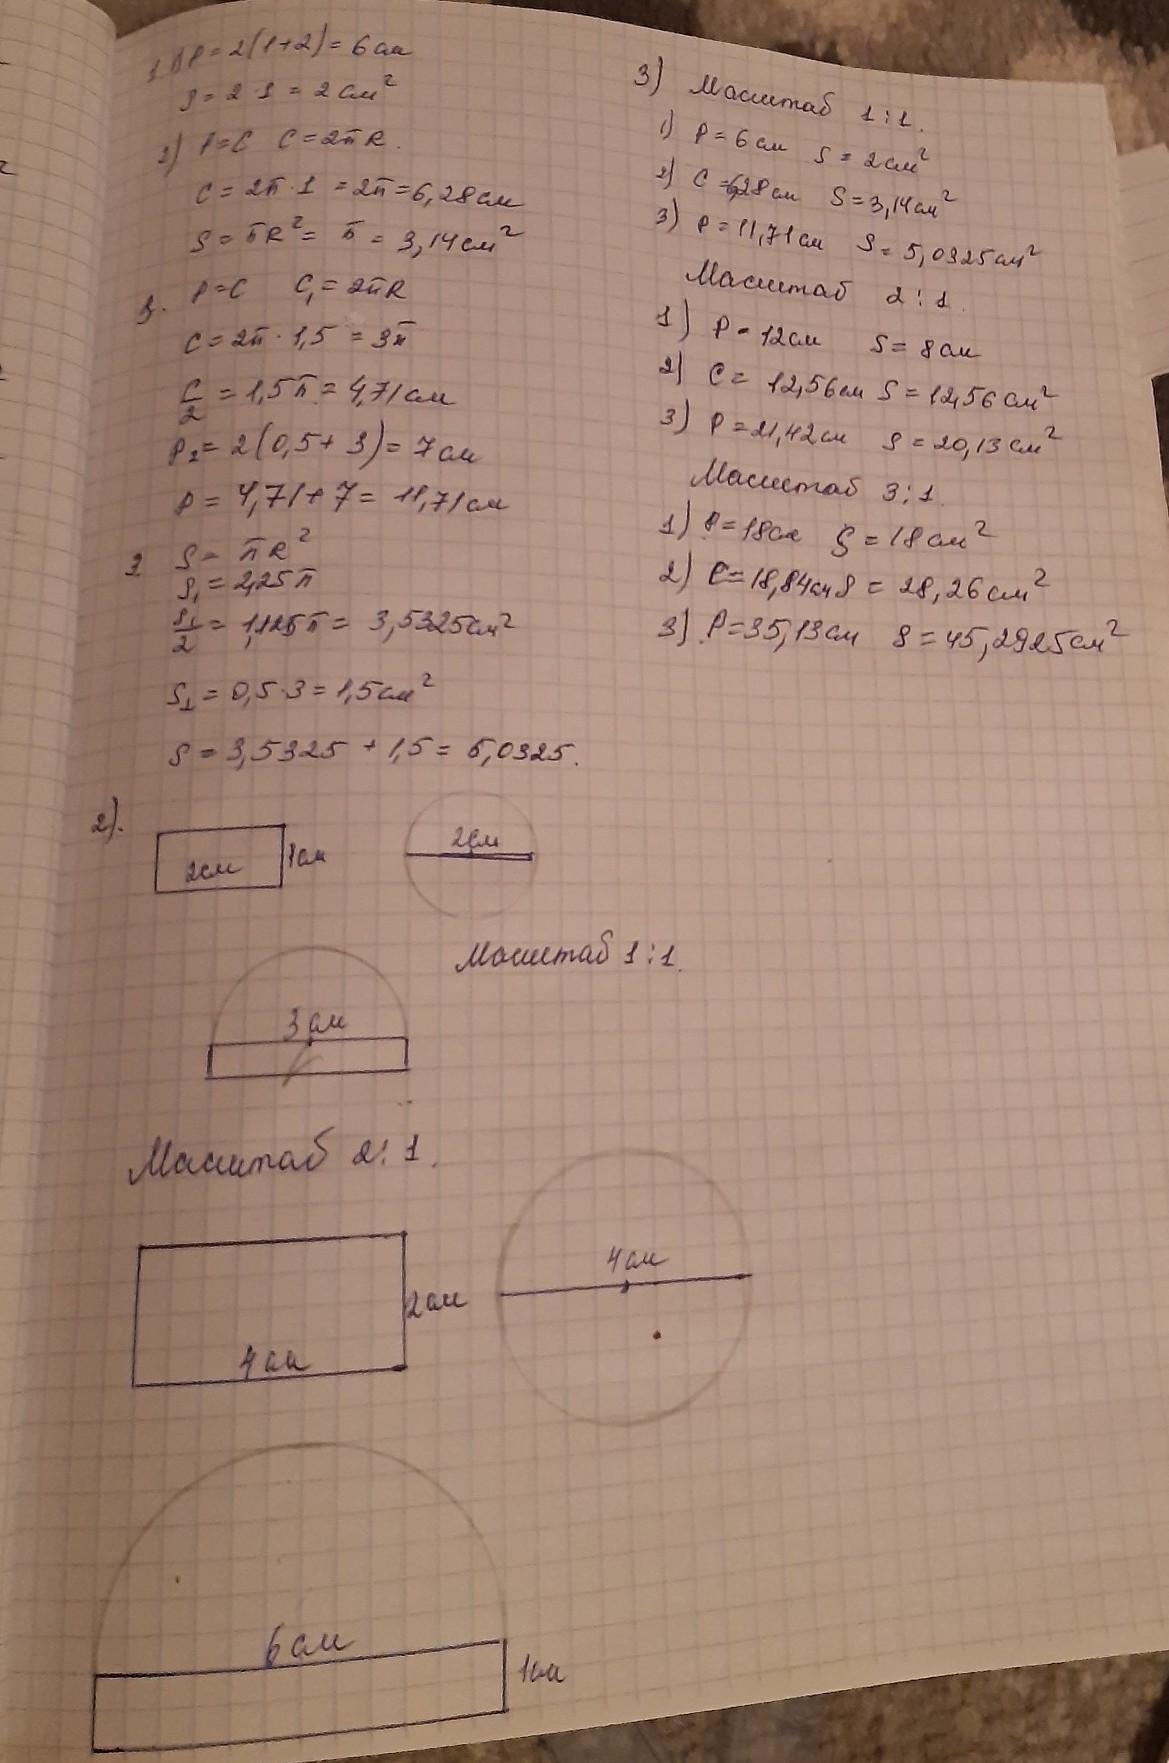 1. 1) P = 2(1+2) = 6 см
S = 2 · 1 = 2 см²
2) P = C C = 2πR.
C = 2π · 1 = 2π = 6,28 см
S = πR² = π = 3,14 см²
3. P = C C₁ = 2πR
C = 2π · 1,5 = 3π
C/2 = 1,5π = 4,71 см
P₂ = 2(0,5 + 3) = 7 см
P = 4,71 + 7 = 11,71 см
S = πR²
S₁ = 2,25π
S₁/2 = 1,125π = 3,5325 см²
S₂ = 0,5 · 3 = 1,5 см²
S = 3,5325 + 1,5 = 5,0325.
3) Масштаб 1:1.
1) P = 6 см S = 2 см²
2) C = 6,28 см S = 3,14 см²
3) P = 11,71 см S = 5,0325 см²
Масштаб 2:1.
1) P = 12 см S = 8 см
2) C = 12,56 см S = 12,56 см²
3) P = 21,42 см S = 20,13 см²
Масштаб 3:1.
1) P = 18 см S = 18 см²
2) C = 18,84 см S = 28,26 см²
3) P = 35,13 см S = 45,2925 см²
2).
2 см 1 см
2 см
Масштаб 1:1.
3 см
Масштаб 2:1.
4 см
2 см
4 см
6 см
1 см